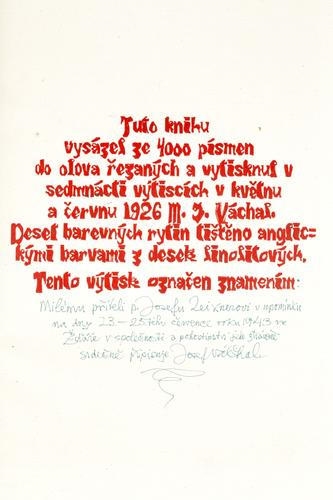 Tuto knihu
vysázel ze 4000 písmen
do olova řezaných a vytisknul v
sedmnácti výtiscích v květnu
a červnu 1926 M. J. Váchal.
Deset barevných rytin tištěno anglic=
kými barvami z desek linolitových.
Tento výtisk označen znamením:
Milému příteli p. Josefu Zeixnerovi v upomínku
na dny 23.-25tého července roku 1943 ve
v společnosti a pohostinství
srdečně připisuje Josef Váchal